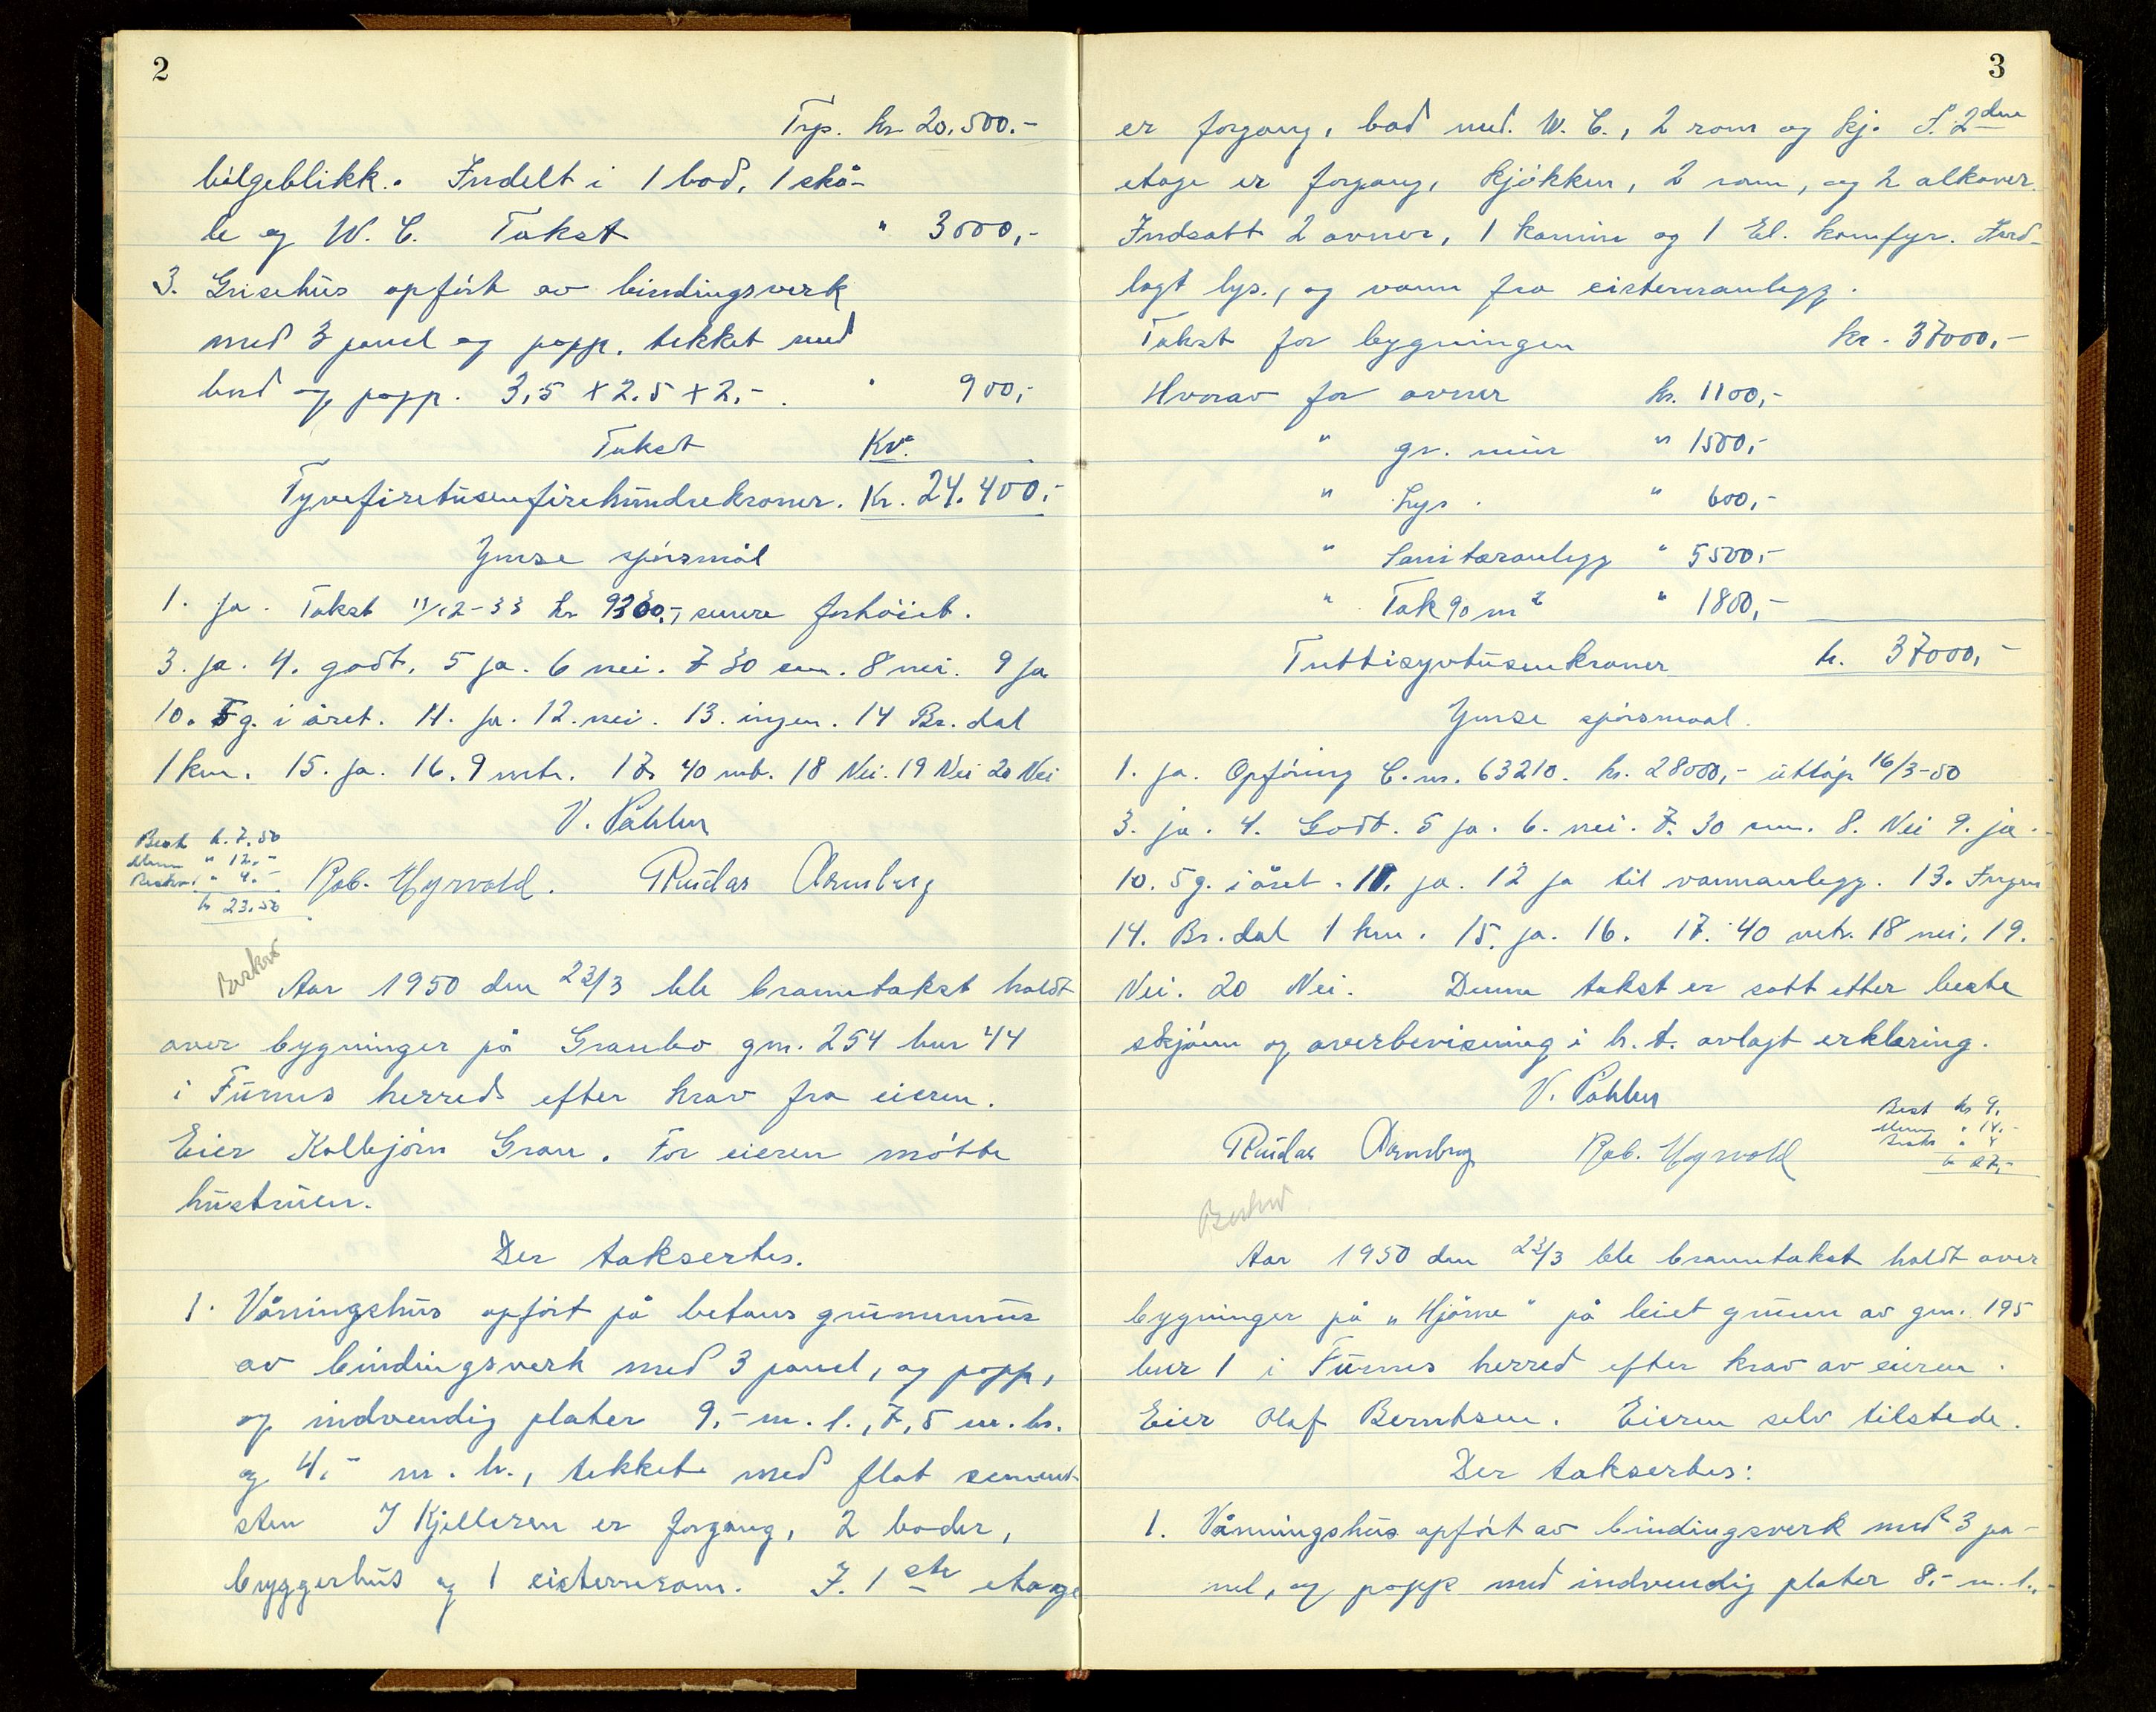 2
Trp. kr 20.500.-
bølgeblikk. Indelt i 1 bod, 1 skå-
le og W. C. Takst " 3000,-
3. Grisehus opført av bindingsverk
med 3 panel og papp. tekket med
bord og papp. 3,5 x 2.5 x 2,- . " 900,-
Takst Kr.
Tyvefiretusenfirehundrekroner. Kr. 24.400.-
Ymse spørsmål
1. ja. Takst 11/12-33 kr 9300,- senere forhøiet.
3. ja. 4. godt. 5 ja. 6 nei. 7 30 cm. 8 nei. 9 ja
10. 5 g. i året. 11. ja. 12. nei. 13. ingen. 14 Br. dal
1 km. 15. ja. 16. 9 mtr. 17. 40 mtr. 18 Nei. 19 Nei 20 Nei
V. Pahlen
Best k. 7.50
Menn " 12.-
Beskr. " 4.-
kr 23.50
Rob. Myrvold. Reidar Armberg
Beskr
Aar 1950 den 23/3 ble branntakst holdt
over bygninger på Granbo gnr. 254 bnr 44
i Furnes herred efter krav fra eieren.
Eier Kolbjørn Gran. For eieren møtte
hustruen.
Der taksertes.
1. Våningshus opført på betong grunnmur
av bindingsverk med 3 panel, og papp,
og indvendig plater 9,- m. l., 7,5 m. br.
og 4,- m. h., tekket med flat sement-
sten I Kjelleren er forgang, 2 boder,
bryggerhus og 1 cisternerom. I. 1ste etage
3
er forgang, bad med. W. C., 2 rom og kj. I. 2dne
etage er forgang, kjøkken, 2 rom, og 2 alkover.
Indsatt 2 ovner, 1 kamin og 1 El. komfyr. Ind-
lagt lys., og vann fra cisterneanlegg.
Takst for bygningen kr. 37000,-
Hvorav for ovner kr. 1100,-
" gr. mur " 1500,-
" Lys. " 600,-
" Sanitæranlegg " 5500,-
" Tak 90 m2 " 1800,-
Trettisyvtusenkroner k. 37000,-
Ymse spørsmaal.
1. ja. Opføring C. nr. 63210. kr. 28000,- utløp 16/3-50
3. ja. 4. Godt. 5 ja. 6. nei. 7. 30 cm. 8. Nei 9. ja.
10. 5 g. i året. 11. ja. 12 ja til vannanlegg. 13. Ingen
14. Br. dal 1 km. 15. ja. 16. 17. 40 mtr. 18 nei. 19.
Nei. 20 Nei. Denne takst er satt etter beste
skjønn og overbevisning i h. t. avlagt erklæring.
V. Pahlen
Reidar Armberg Rob. Myrvold
Best kr 9.
Menn " 14.-
Beskr " 4
kr 27,-
Beskr
Aar 1950 den 23/3 ble branntakst holdt over
bygninger på "Hjørne" på leiet grunn av gnr. 195
bnr 1 i Furnes herred efter krav av eieren.
Eier Olaf Berntsen. Eieren selv tilstede.
Der taksertes:
1. Våningshus opført av bindingsverk med 3 pa-
nel, og papp med indvendig plater 8,- m. l.,